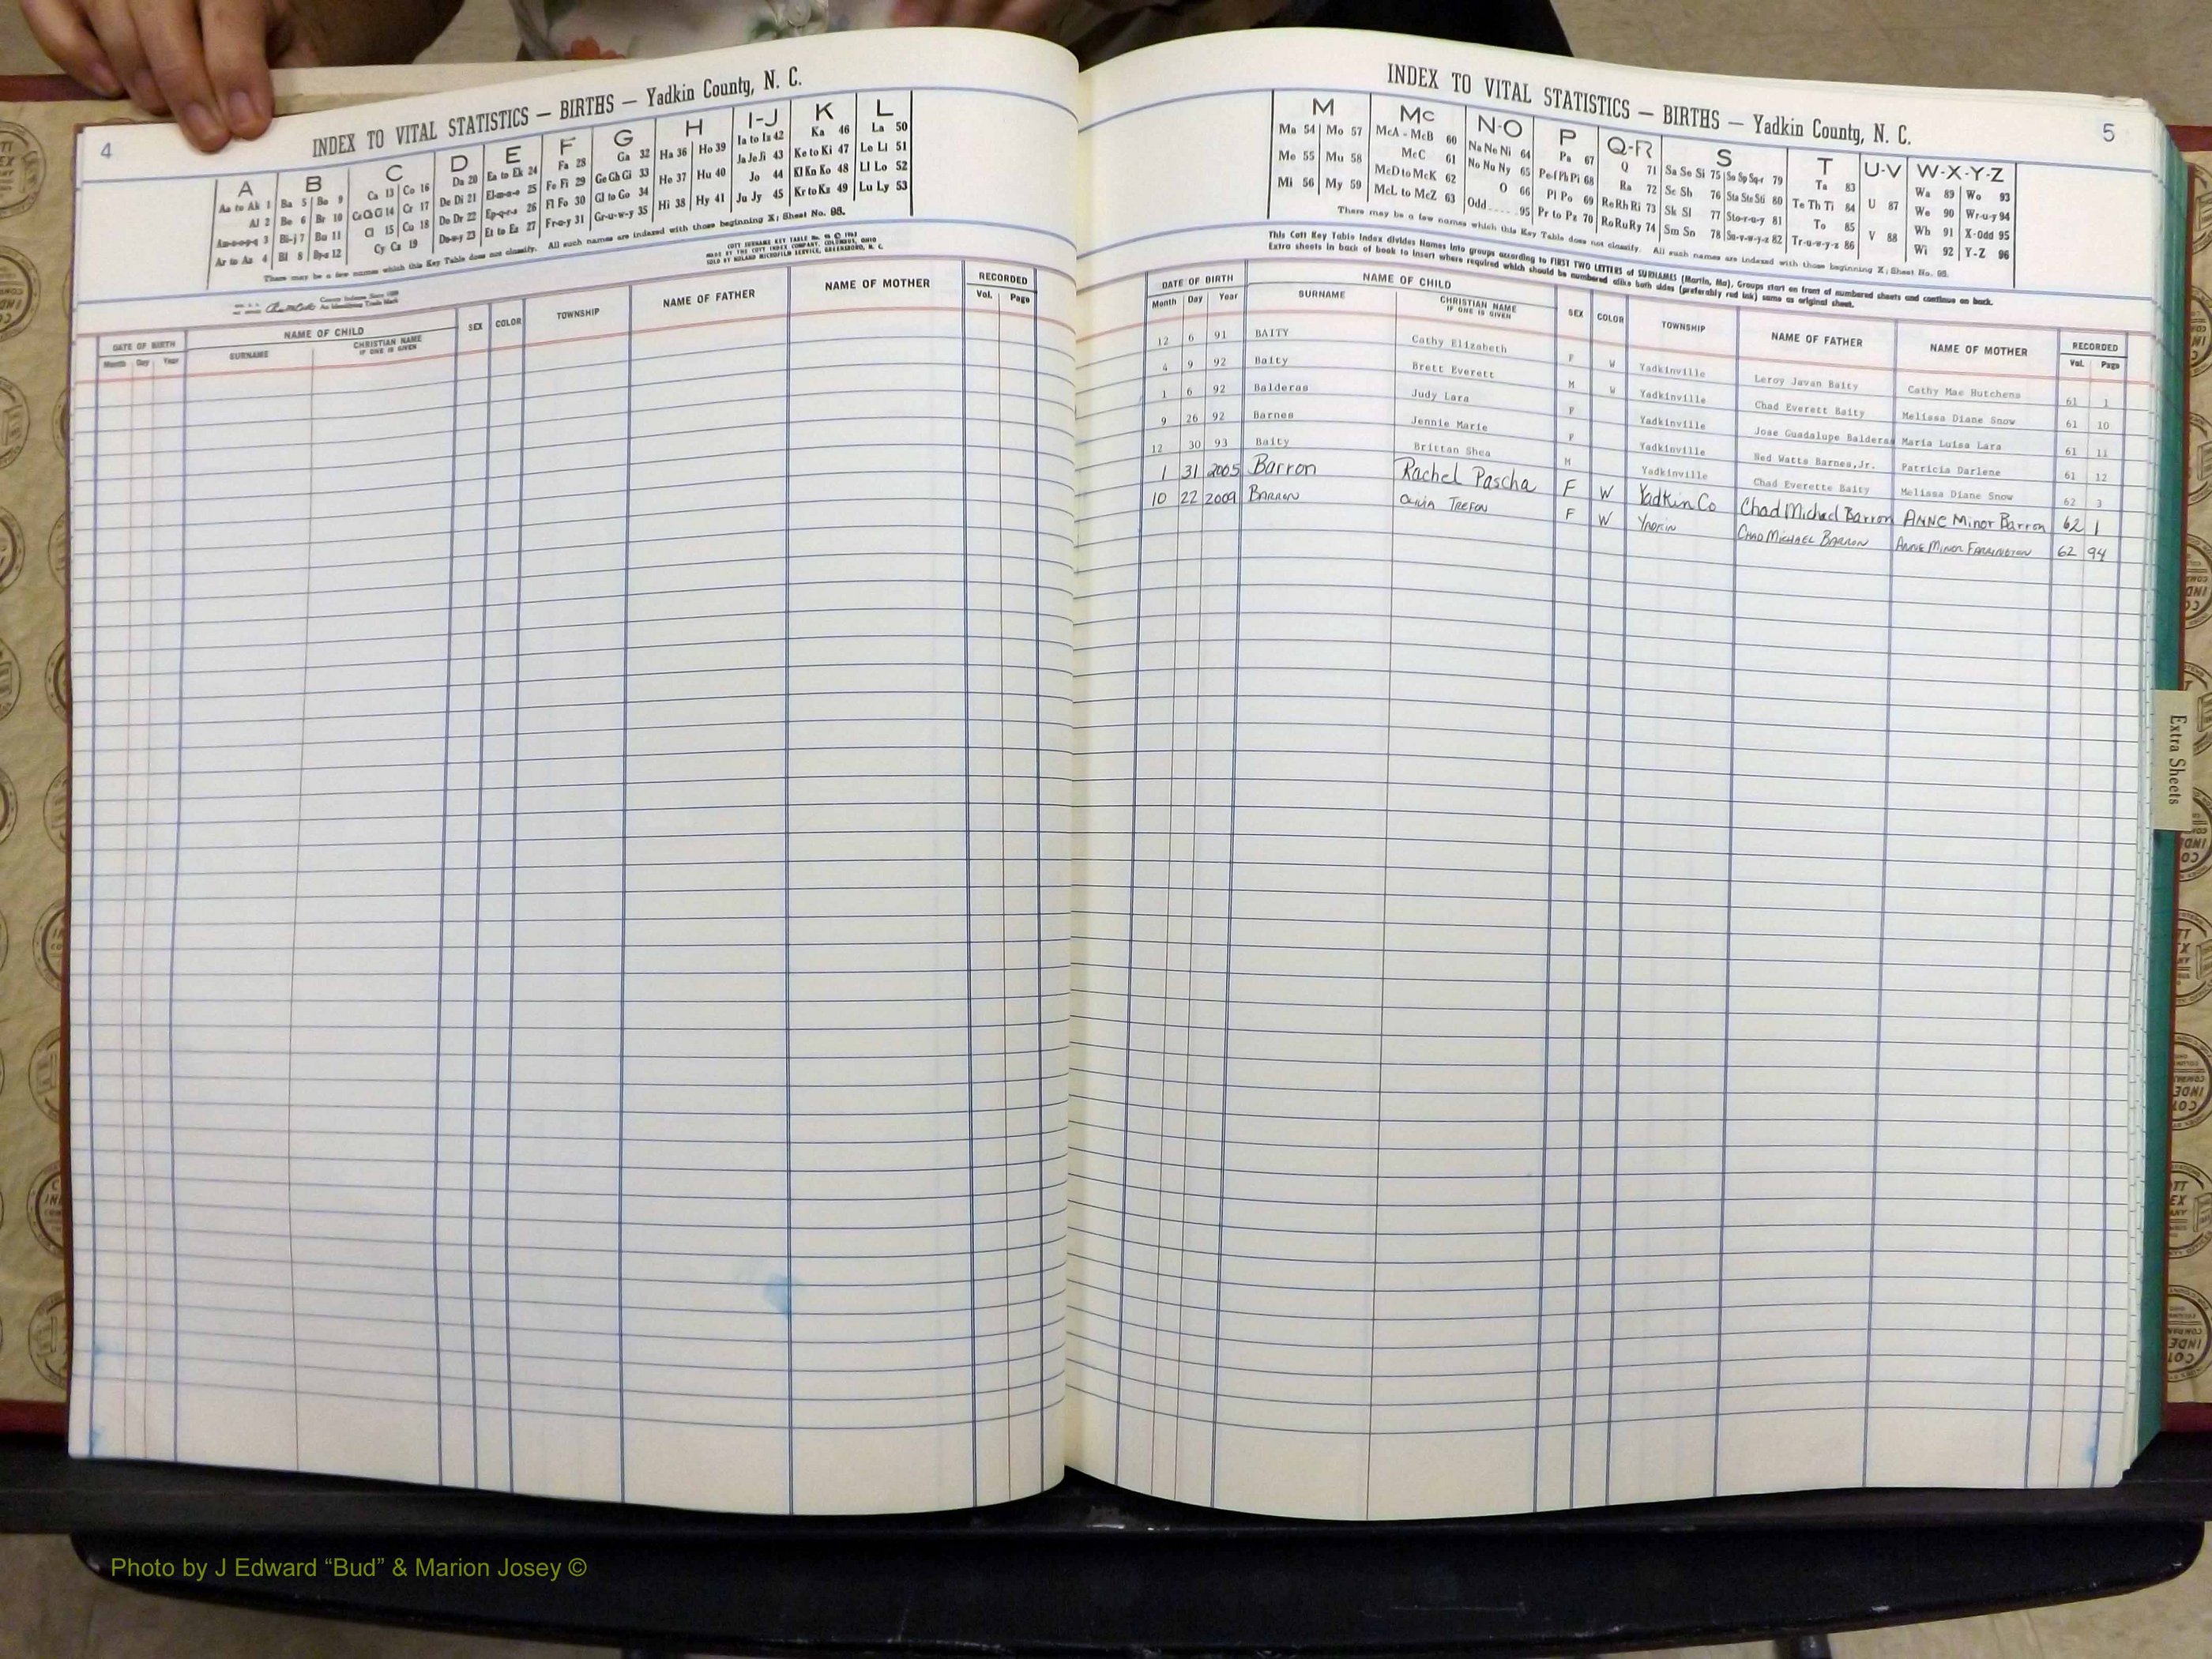 4
INDEX TO VITAL STATISTICS — BIRTHS — Yadkin County, N. C.
A B C D E F G H I-J K L
Aa to Ak 1 Ba 5 Bo 9 Ca 13 Co 16 Da 20 Ea to Ek 24 Fa 28 Ga 32 Ha 36 Ho 39 Ia to Iz 42 Ka 46 La 50
Al 2 Be 6 Br 10 Ce Ch Ci 14 Cr 17 De Di 21 El-m-n-o 25 Fe Fi 29 Ge Gh Gi 33 He 37 Hu 40 Ja Je Ji 43 Ke to Ki 47 Le Li 51
Am-n-o-p-q 3 Bi-j 7 Bu 11 Cl 15 Cu 18 Do Dr 22 Ep-q-r-s 26 Fl Fo 30 Gl to Go 34 Hi 38 Hy 41 Jo 44 Kl Kn Ko 48 Ll Lo 52
Ar to Az 4 Bl 8 By-z 12 Cy Cz 19 Du-w-y 23 Et to Ez 27 Fr-u-y 31 Gr-u-w-y 35 Ju Jy 45 Kr to Kz 49 Lu Ly 53
There may be a few names which this Key Table does not classify. All such names are indexed with those beginning X; Sheet No. 98.
COTT SURNAME KEY TABLE No.
MADE BY THE COTT INDEX COMPANY, COLUMBUS, OHIO
SOLD BY ROLAND MICROFILM SERVICE, GREENSBORO, N. C.
County Indexes Since 1888
An Identifying Trade Mark
DATE OF BIRTH NAME OF CHILD SEX COLOR TOWNSHIP NAME OF FATHER NAME OF MOTHER RECORDED
Month Day Year SURNAME CHRISTIAN NAME IF ONE IS GIVEN Vol. Page
INDEX TO VITAL STATISTICS — BIRTHS — Yadkin County, N. C.
5
M Mc N-O P Q-R S T U-V W-X-Y-Z
Ma 54 Mo 57 McA - McB 60 Na Ne Ni 64 Pa 67 Q 71 Sa Se Si 75 So Sp Sq-r 79 Ta 83 U 87 Wa 89 Wo 93
Me 55 Mu 58 McC 61 No Nu Ny 65 Pe-f Ph Pi 68 Ra 72 Sc Sh 76 Sta Ste Sti 80 Te Th Ti 84 V 88 We 90 Wr-u-y 94
Mi 56 My 59 McD to McK 62 O 66 Pl Po 69 Re Rh Ri 73 Sk Sl 77 Sto-r-u-y 81 To 85 Wh 91 X-Odd 95
McL to McZ 63 Odd 95 Pr to Pz 70 Ro Ru Ry 74 Sm Sn 78 Su-v-w-y-z 82 Tr-u-w-y-z 86 Wi 92 Y-Z 96
There may be a few names which this Key Table does not classify. All such names are indexed with those beginning X; Sheet No. 98.
This Cott Key Table Index divides Names into groups according to FIRST TWO LETTERS of SURNAMES (Martin, Ma). Groups start on front of numbered sheets and continue on back.
Extra sheets in back of book to insert where required which should be numbered alike both sides (preferably red ink) same as original sheet.
DATE OF BIRTH NAME OF CHILD SEX COLOR TOWNSHIP NAME OF FATHER NAME OF MOTHER RECORDED
Month Day Year SURNAME CHRISTIAN NAME IF ONE IS GIVEN Vol. Page
12 6 91 BAITY Cathy Elizabeth F W Yadkinville Leroy Javan Baity Cathy Mae Hutchens 61 1
4 9 92 Baity Brett Everett M W Yadkinville Chad Everett Baity Melissa Diane Snow 61 10
1 6 92 Balderas Judy Lara F Yadkinville Jose Guadalupe Balderas Maria Luisa Lara 61 11
9 26 92 Barnes Jennie Marie F Yadkinville Ned Watts Barnes,Jr. Patricia Darlene 61 12
12 30 93 Baity Brittan Shea M Yadkinville Chad Everette Baity Melissa Diane Snow 62 3
1 31 2005 Barron Rachel Pascha F W Yadkin Co Chad Michael Barron ANNE Minor Barron 62 1
10 22 2009 BARRON OLIVIA TREFON F W YADKIN CHAD MICHAEL BARRON ANNE MINOR FARRINGTON 62 94
Extra Sheets
Photo by J Edward “Bud” & Marion Josey ©